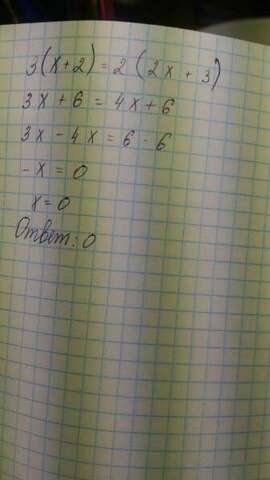 3(x+2) = 2(2x + 3)
3x + 6 = 4x + 6
3x - 4x = 6 - 6
-x = 0
x = 0
Ответ: 0